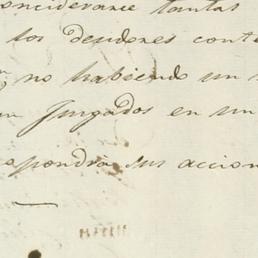 considerarce tantas
los deudores cont
no habiendo un
Jurgados en un
spondra sus accion